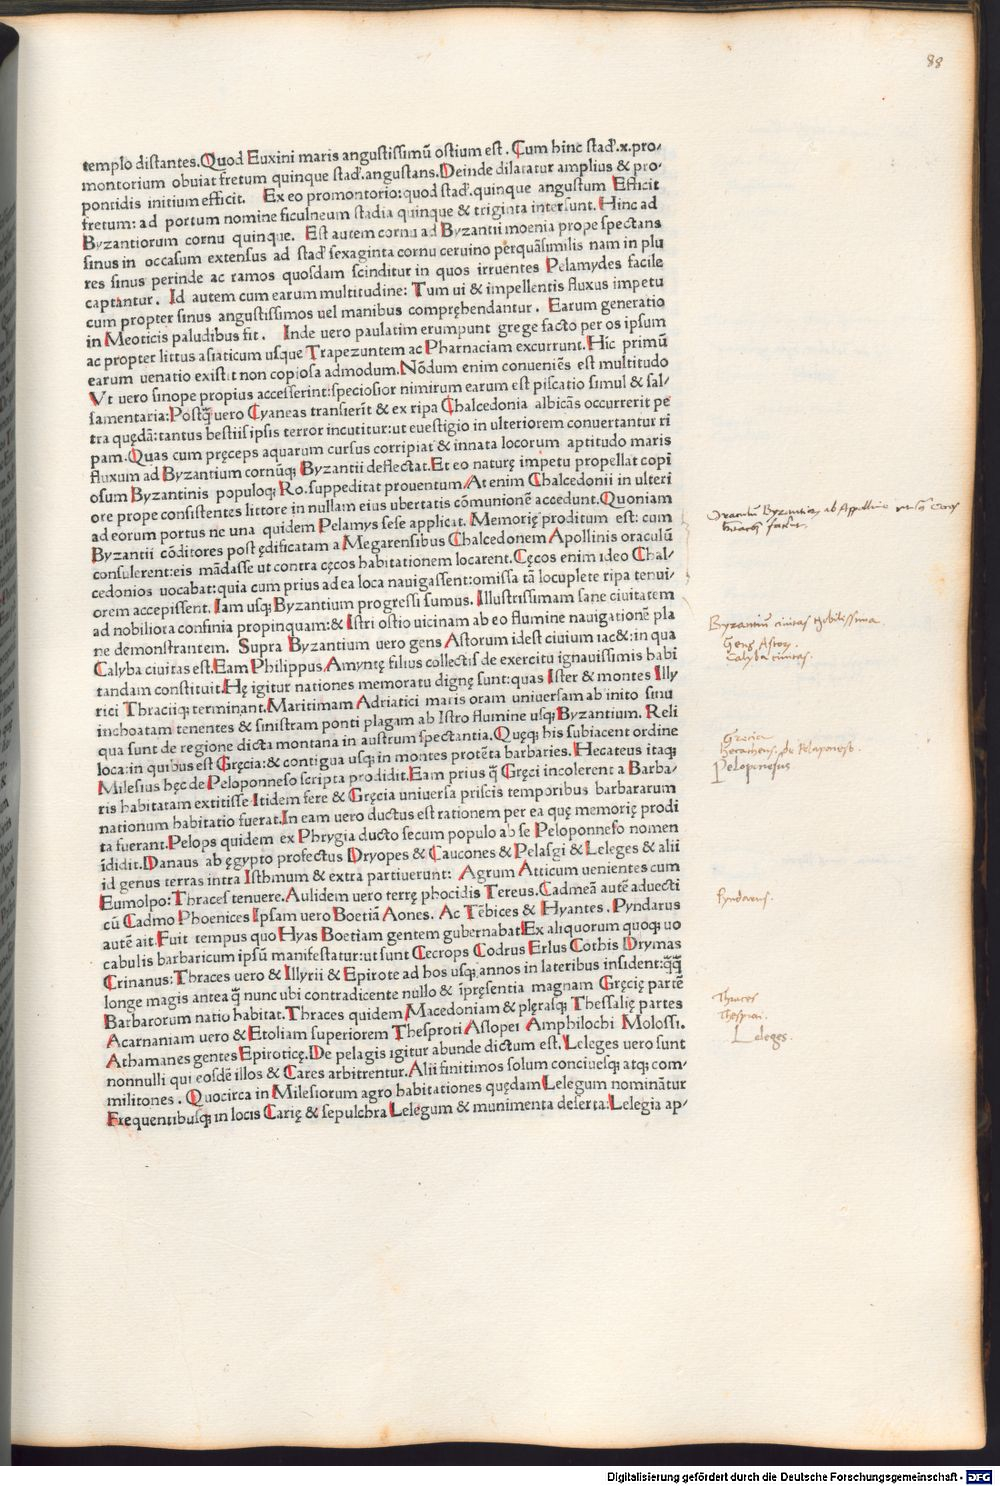 88
templo distantes. Quod Euxini maris angustissimū ostium est. Cum hinc stad'.x.pro/
montorium obuiat fretum quinque stad'.angustans. Deinde dilatatur amplius & pro/
pontidis initium efficit. Ex eo promontorio: quod stad'.quinque angustum Efficit
fretum: ad portum nomine ficulneum stadia quinque & triginta intersunt. Hinc ad
Byzantiorum cornu quinque. Est autem cornu ad Byzantii moenia prope spectans
sinus in occasum extensus ad stad' sexaginta cornu ceruino perquāsimilis nam in plu
res sinus perinde ac ramos quosdam scinditur in quos irruentes Pelamydes facile
captantur. Id autem cum earum multitudine: Tum ui & impellentis fluxus impetu
cum propter sinus angustissimos uel manibus comprẹhendantur. Earum generatio
in Meoticis paludibus fit. Inde uero paulatim erumpunt grege facto per os ipsum
ac propter littus asiaticum usque Trapezuntem ac Pharnaciam excurrunt. Hic primū
earum uenatio existit non copiosa admodum. Nōdum enim conueniēs est multitudo
Vt uero sinope propius accesserint: speciosior nimirum earum est piscatio simul & sal/
samentaria: Postq̄ uero Cyaneas transierīt & ex ripa Chalcedonia albicās occurrerit pe
tra quędā: tantus bestiis ipsis terror incutitur: ut euestigio in ulteriorem conuertantur ri
pam. Quas cum pręceps aquarum cursus corripiat & innata locorum aptitudo maris
fluxum ad Byzantium cornūq; Byzantii deflectat. Et eo naturę impetu propellat copi
osum Byzantinis populoq; Ro. suppeditat prouentum. At enim Chalcedonii in ulteri
ore prope consistentes littore in nullam eius ubertatis cōmunionē accedunt. Quoniam
ad eorum portus ne una quidem Pelamys sese applicat. Memorię proditum est: cum
Byzantii cōditores post ędificatam a Megarensibus Chalcedonem Apollinis oraculū
consulerent: eis mādasse ut contra cęcos habitationem locarent. Cęcos enim ideo Chal/
cedonios uocabat: quia cum prius ad ea loca nauigassent: omissa tā locuplete ripa tenui/
orem accepissent. Iam usq; Byzantium progressi sumus. Illustrissimam sane ciuitatem
ad nobiliora confinia propinquam: & Istri ostio uicinam ab eo flumine nauigationē pla
ne demonstrantem. Supra Byzantium uero gens Astorum idest ciuium iac&: in qua
Calyba ciuitas est. Eam Philippus Amyntę filius collectis de exercitu ignauissimis babi
tandam constituit. Hę igitur nationes memoratu dignę sunt: quas Ister & montes Illy
rici Thraciiq; terminant. Maritimam Adriatici maris oram uniuersam ab inito sinu
inchoatam tenentes & sinistram ponti plagam ab Istro flumine usq; Byzantium. Reli
qua sunt de regione dicta montana in austrum spectantia. Quęq; his subiacent ordine
loca: in quibus est Gręcia: & contigua usq; in montes protēta barbaries. Hecateus itaq;
Milesius hęc de Peloponneso scripta prodidit. Eam prius q̄ Gręci incolerent a Barba/
ris habitatam extitisse Itidem fere & Gręcia uniuersa priscis temporibus barbararum
nationum habitatio fuerat. In eam uero ductus est rationem per ea quę memorię prodi
ta fuerant. Pelops quidem ex Phrygia ducto secum populo ab se Peloponneso nomen
īdidit. Danaus ab ęgypto profectus Dryopes & Caucones & Pelasgi & Leleges & alii
id genus terras intra Isthmum & extra partiuerunt: Agrum Atticum uenientes cum
Eumolpo: Thraces tenuere. Aulidem uero terrę phocidis Tereus. Cadmeā autē aduecti
cū Cadmo Phoenices Ipsam uero Boetiā Aones. Ac Tēbices & Hyantes. Pyndarus
autē ait. Fuit tempus quo Hyas Boetiam gentem gubernabat Ex aliquorum quoq; uo
cabulis barbaricum ipsū manifestatur: ut sunt Cecrops Codrus Erlus Cothis Drymas
Crinanus: Thraces uero & Illyrii & Epirote ad hos usq; annos in lateribus insident: q̄q̄
longe magis antea q̄ nunc ubi contradicente nullo & īpręsentia magnam Gręcię partē
Barbarorum natio habitat. Thraces quidem Macedoniam & plęrasq; Thessalię partes
Acarnaniam uero & Etoliam superiorem Thesproti Aslopei Amphilochi Molossi.
Athamanes gentes Epiroticę. De pelagis igitur abunde dictum est. Leleges uero sunt
nonnulli qui eosdē illos & Cares arbitrentur. Alii finitimos solum conciuesq; atq; com/
militones. Quocirca in Milesiorum agro habitationes quędam Lelegum nominātur
Frequentibusq; in locis Carię & sepulchra Lelegum & munimenta deserta: Lelegia ap/
Oraculū Byzantion ab Appolline
Byzantiū ciuitas nobilissima.
Gens Astorum.
Calyba ciuitas.
Grecia
de Peloponeso.
Peloponesus
Pyndarus.
Thraces
Thesproti.
Leleges.
Digitalisierung gefördert durch die Deutsche Forschungsgemeinschaft - DFG